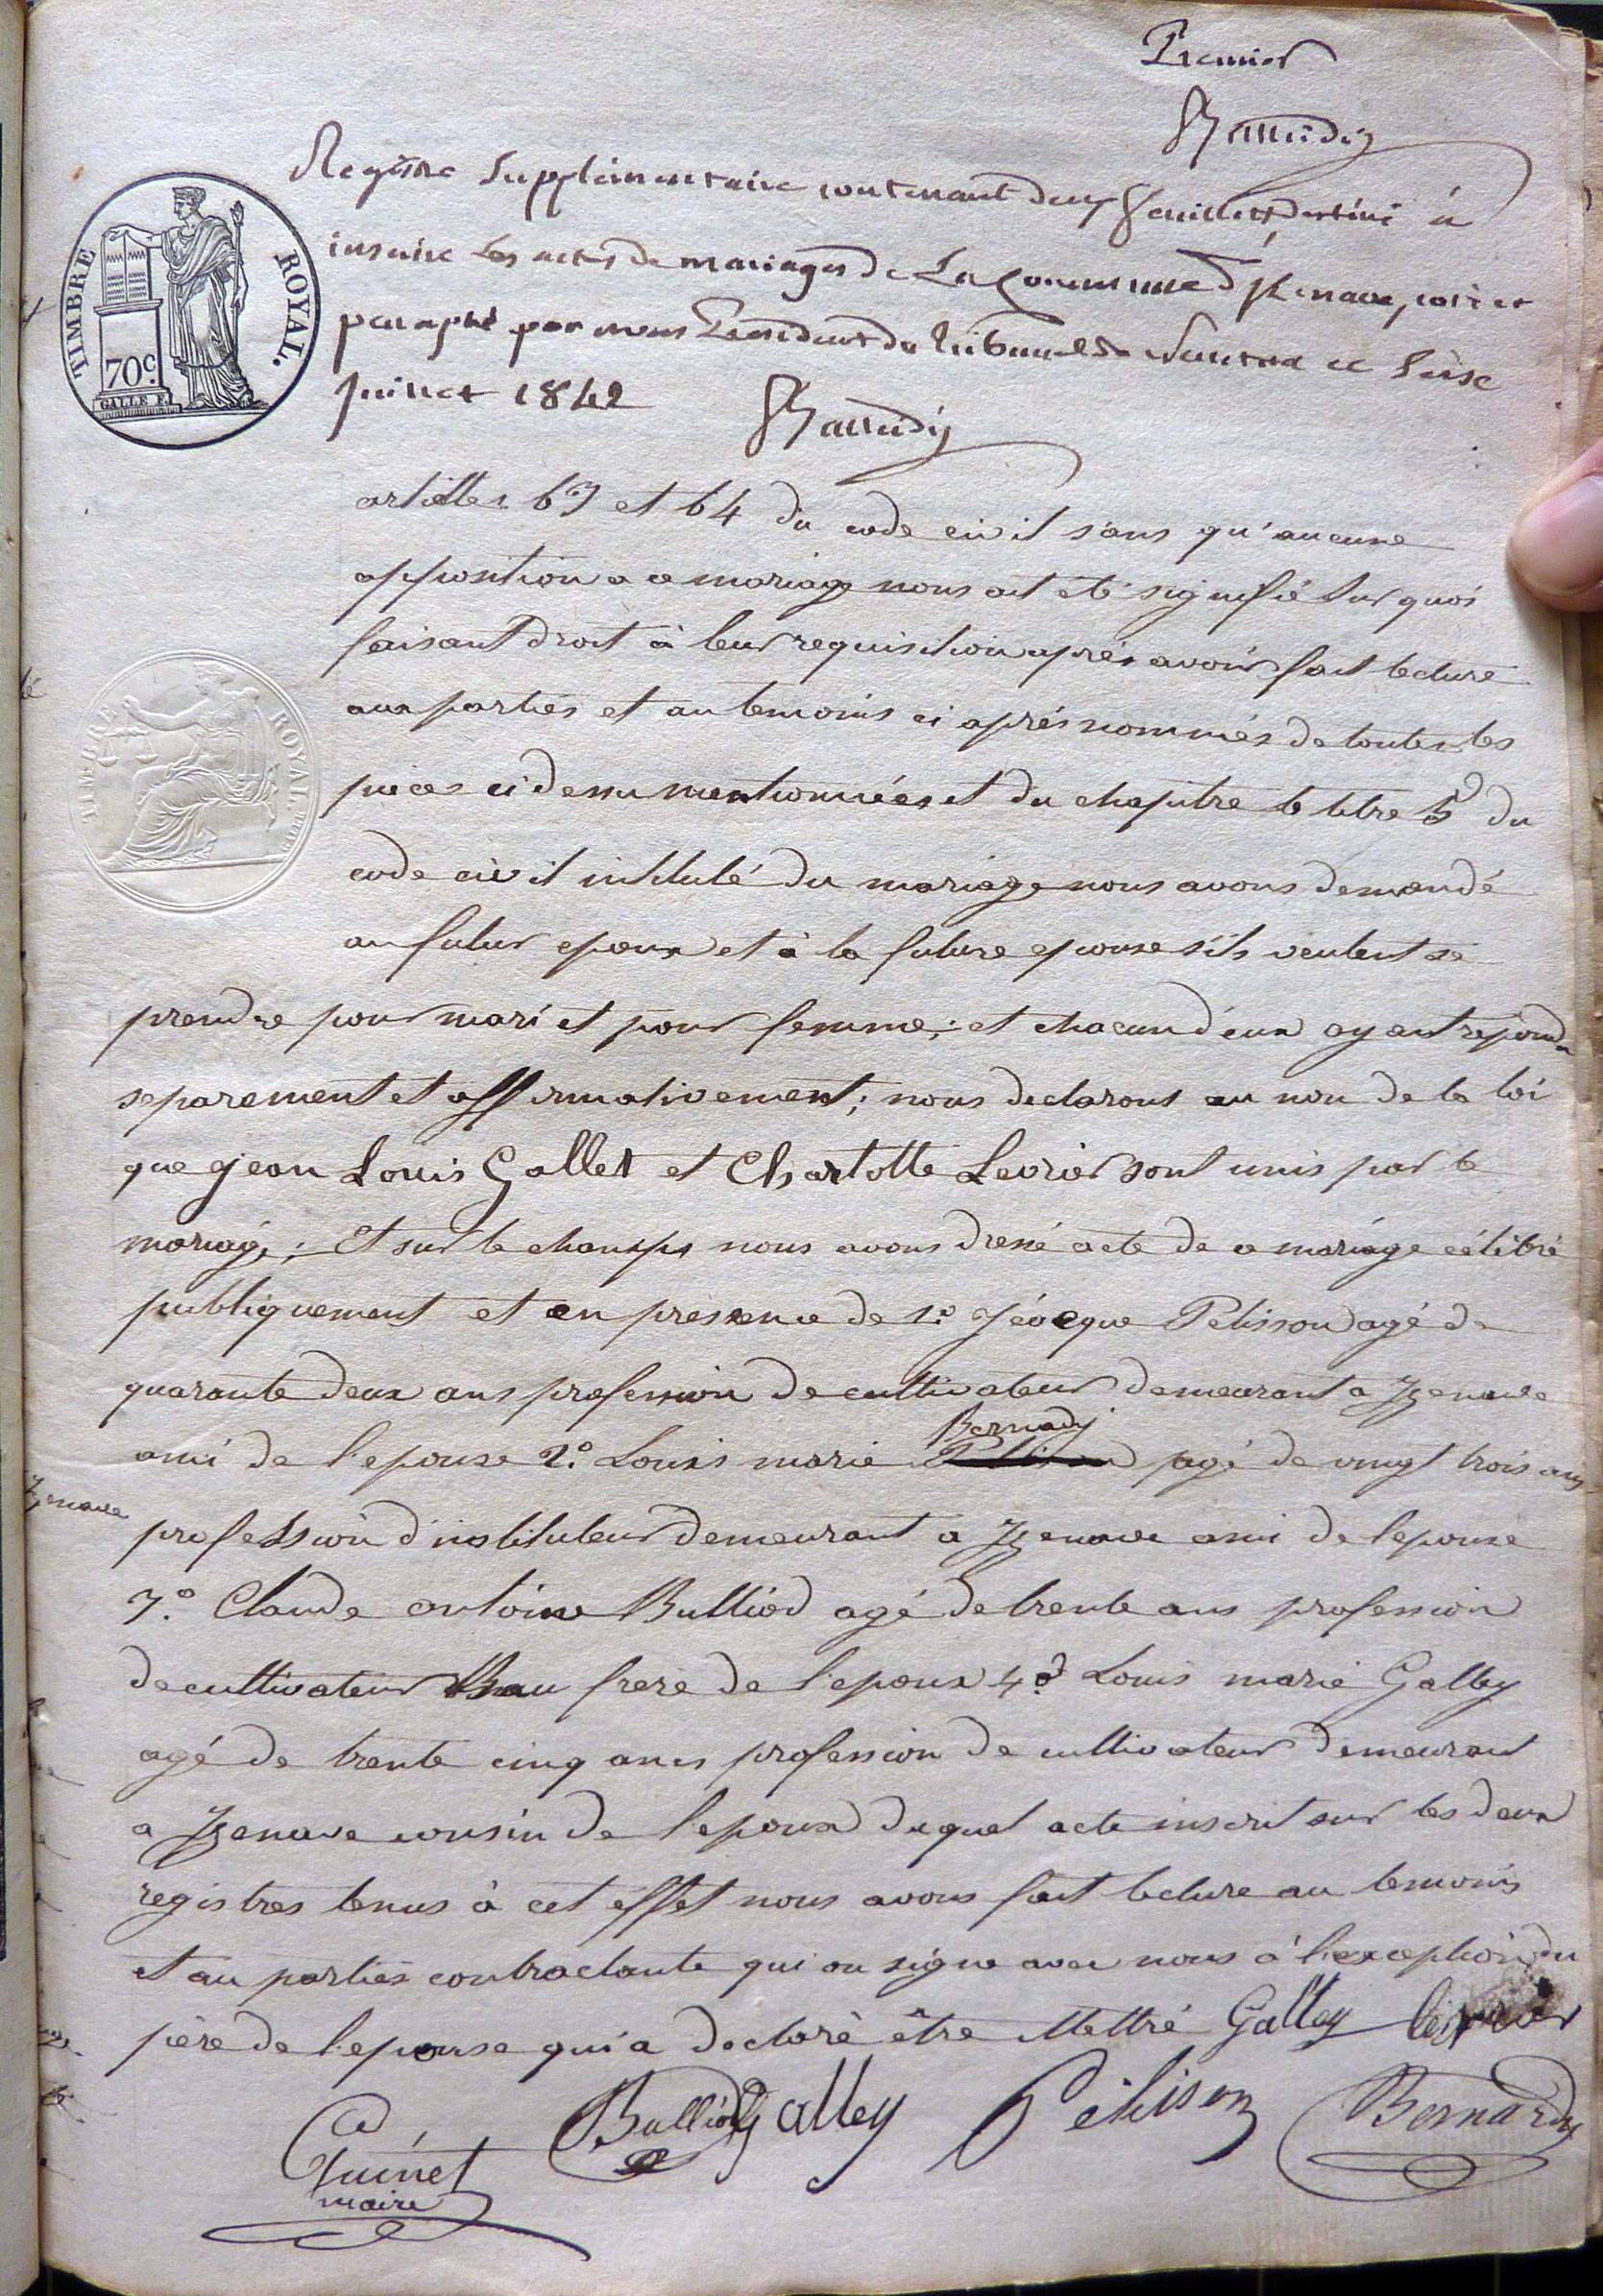 Premier
TIMBRE ROYAL.
70c.
GALLE F.
Registre Supplémentaire contenant deux feuillets destiné à
inscrire les actes de mariages de La Commune d'Izenave, coté et
paraphé par nous Président du tribunal de Nantua ce seise
juillet 1842
TIMBRE ROYAL
articles 63 et 64 du code civil sans qu'aucune
opposition a ce mariage nous ait eté signifié Sur quoi
faisant droit à leur requisition après avoir fait lecture
aux parties et au temoins ci après nommés de toutes les
pieces ci dessu mentionnées et du chapitre 6 titre 5 du
code civil intitulé du mariage nous avons demandé
au futur epoux et à la future epouse s'ils veulent se
prendre pour mari et pour femme; et chacun d'eux ayent repondu
separement et affirmativement; nous declarons au non de la loi
que jean Louis Galley et Charlotte Levrier sont unis par le
mariage; Et sur le champs nous avons dressé acte de ce mariage célébré
publiquement et en presence de 1.° Jacque Pelisson agé de
quarante deux ans profession de cultivateur demeurant a Izenave
ami de l'epouse 2.° Louis marie Bernady agé de vingt trois ans
Izenave
profession d'instituteur demeurant a Izenave ami de l'epouse
3.° Claude antoine Bulliod agé de trente ans profession
de cultivateur Beau frere de l'epoux 4.° Louis marie Galley
agé de trente cinq ans profession de cultivateur demeurant
a Izenave cousin de l'epoux duquel acte inscrit sur les deux
registres tenus à cet effet nous avons fait lecture au temoins
et au parties contractante qui on signe avec nous à l'exception du
père de l'epouse qui a declaré être illettré Galley levrier
Bulliod Galley Pélisson Bernardy
Guinet
maire